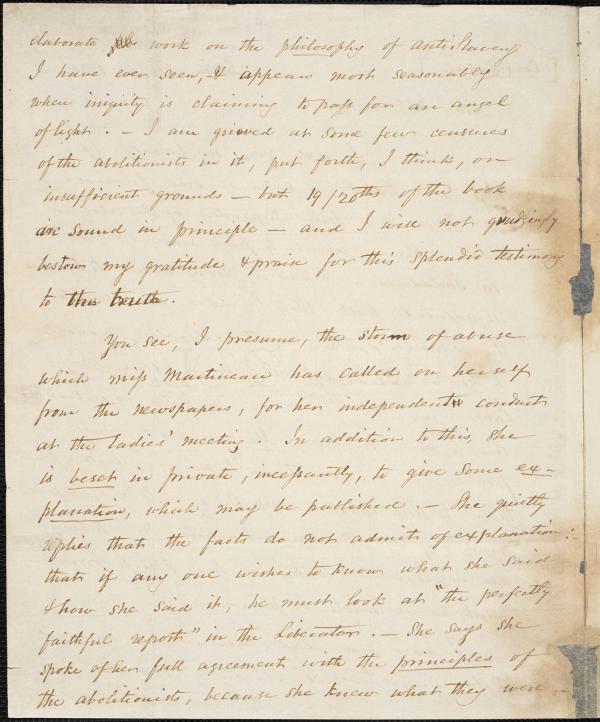 elaborate work on the philosophy of antislavery
I have ever seen, & appears most seasonably
when iniquity is claiming to pass for an angel
of light. - I am grieved at some few censures
of the abolitionists in it, put forth, I think, on
insufficient grounds - but 19/20ths of the book
are sound in principle - and I will not grudgingly
bestow my gratitude & praise for this splendid testimony
to the truth.
You see, I presume, the storm of abuse
which Miss Martineau has called on herself
from the newspapers, for her independent conduct
at the ladies' meeting. In addition to this, she
is beset in private, incessantly, to give some ex-
planation, which may be published. - She quietly
replies that the facts do not admit of explanation:-
that if any one wishes to know what she said
& how she said it, he must look at "the perfectly
faithful report" in the Liberator. - She says she
spoke of her full agreement with the principles of
the abolitionists, because she knew what they were,-